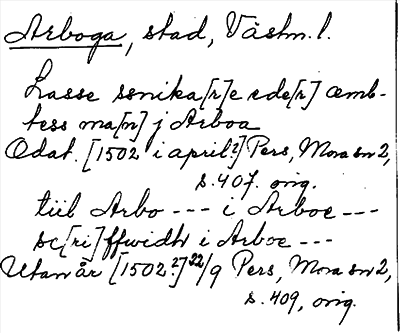 Arboga, stad, Västm. l.
Lasse ssnika[r]e ede[r] æmb-
tess ma[n] j Arboa
Odat. [1502 i april?] Pers, Mora sn 2,
s. 407. orig.
tiil Arbo --- i Arboe ---
sc[ri]ffwidh i Arboe ---
Utan år [1502?] 22/9 Pers, Mora sn 2,
s. 409, orig.